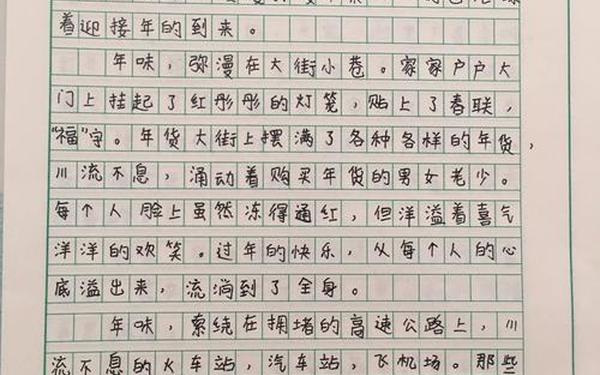 着迎接年的到来。
年味，弥漫在大街小巷。家家户户大
门上挂起了红彤彤的灯笼，贴上了春联，
“福”字。年货大街上摆满了各种各样的年货，
川流不息，涌动着购买年货的男女老少。
每个人脸上虽然冻得通红，但洋溢着喜气
洋洋的欢笑。过年的快乐，从每个人的心
底溢出来，流淌到了全身。
年味，萦绕在拥堵的高速公路上，川
流不息的火车站，汽车站，飞机场。那些